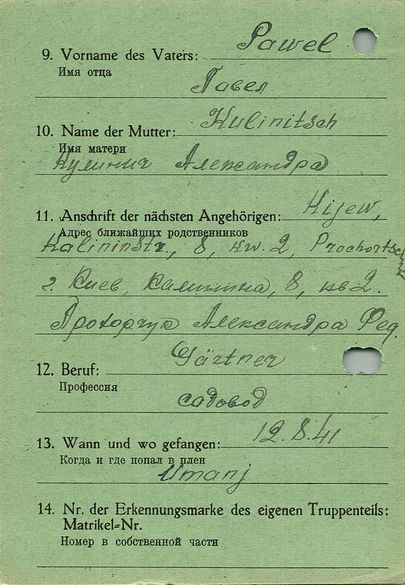 9. Vorname des Vaters: Pawel
Имя отца
Павел
10. Name der Mutter: Kulinitsch
Имя матери
Кулинич Александра
11. Anschrift der nächsten Angehörigen: Kijew,
Адрес ближайших родственников
Kalininstr., 8, kw. 2, Prochortschuk
г. Киев, Калинина, 8, кв 2.
Прохорчук Александра Фед.
12. Beruf: Gärtner
Профессия
садовод
13. Wann und wo gefangen: 12.8.41
Когда и где попал в плен
Umanj
14. Nr. der Erkennungsmarke des eigenen Truppenteils:
Matrikel-Nr.
Номер в собственной части